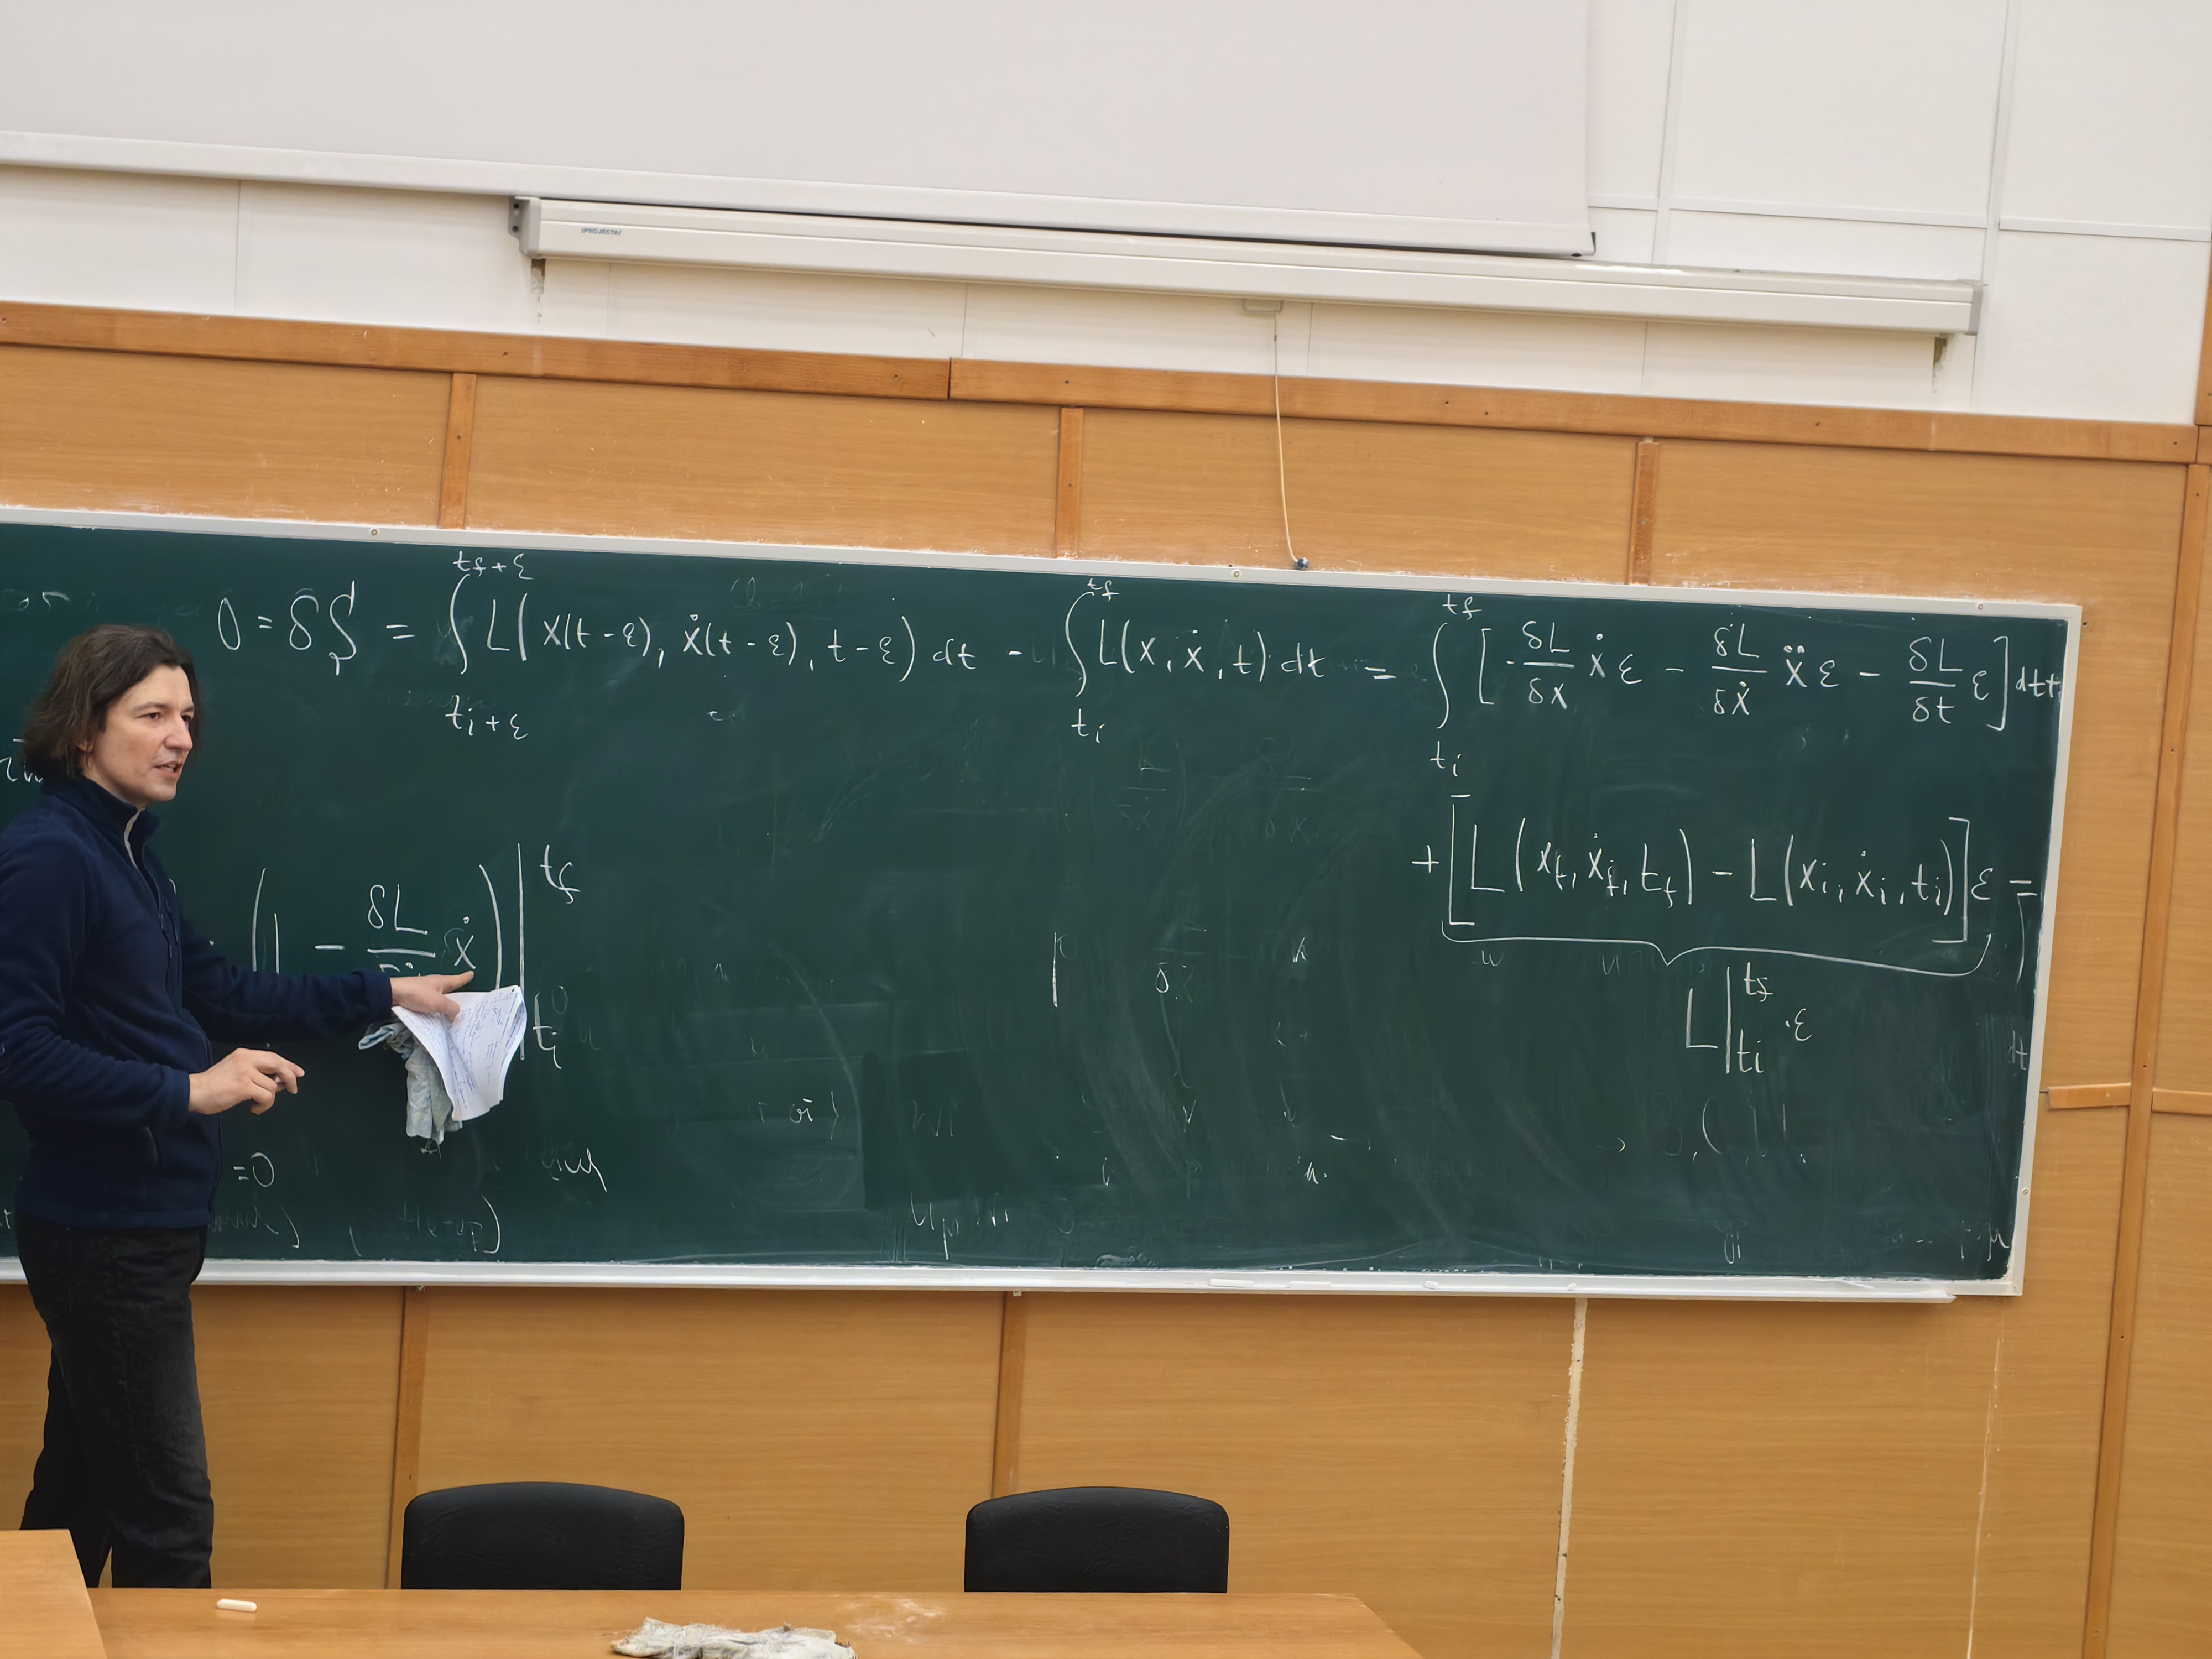 PROJECTA
0 = δS = ∫_{t_i+ε}^{t_f+ε} L(x(t-ε), ẋ(t-ε), t-ε) dt - ∫_{t_i}^{t_f} L(x, ẋ, t) dt = ∫_{t_i}^{t_f} [-δL/δx ẋ ε - δL/δẋ ẍ ε - δL/δt ε] dt +
+ [L(x_f, ẋ_f, t_f) - L(x_i, ẋ_i, t_i)] ε =
L |_{t_i}^{t_f} · ε
- δL/ ẋ) |_{t_i}^{t_f}
=0